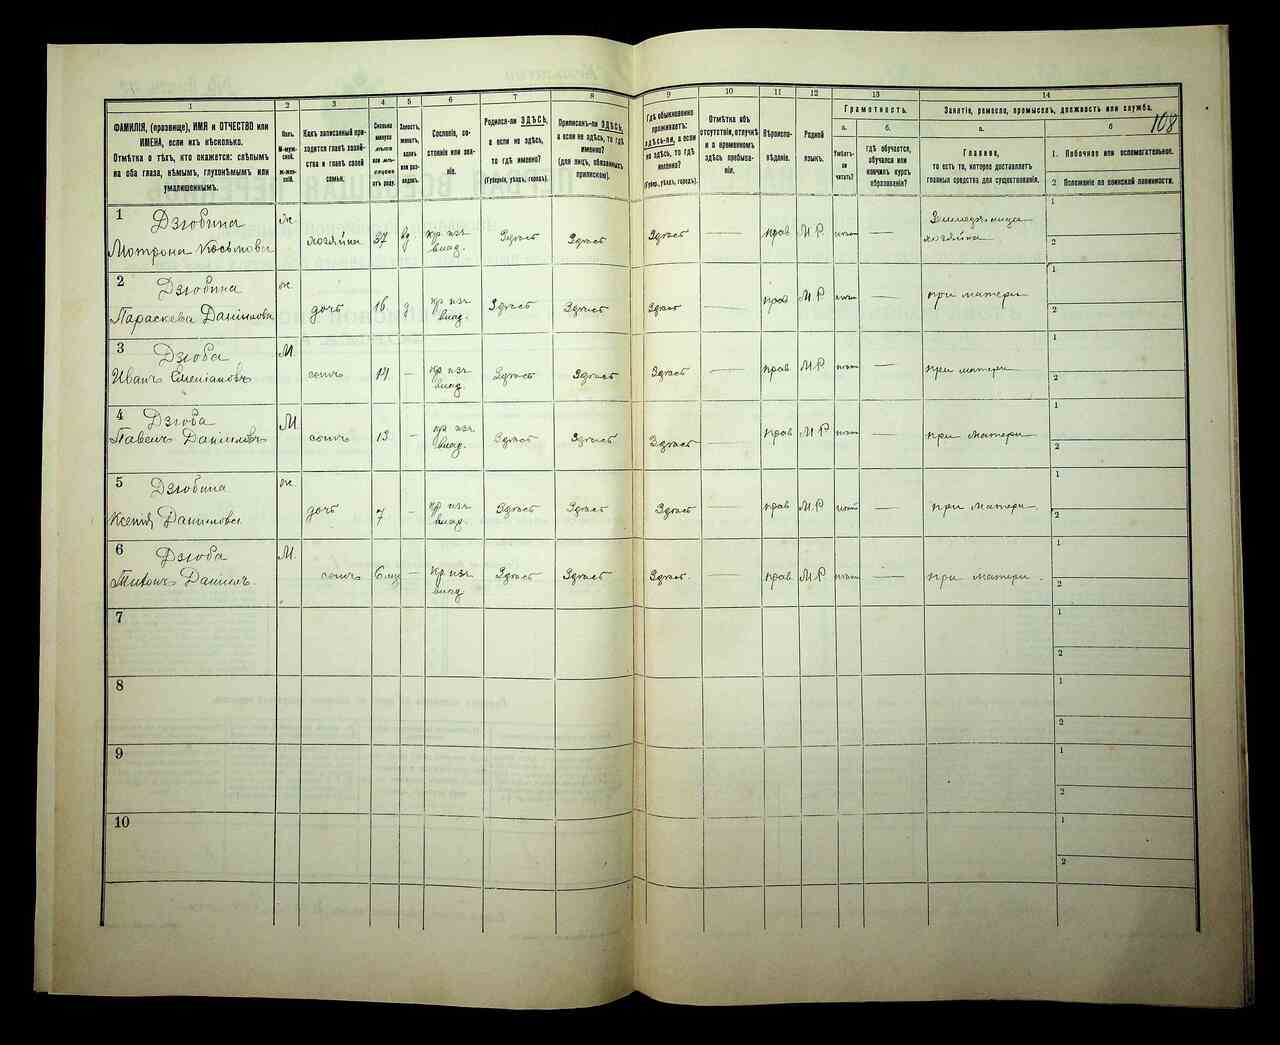 1 2 3 4 5 6 7 8 9 10 11 12 13 14
ФАМИЛІЯ, (прозвище), ИМЯ и ОТЧЕСТВО или
ИМЕНА, если ихъ нѣсколько.
Отмѣтка о тѣхъ, кто окажется: слѣпымъ
на оба глаза, нѣмымъ, глухонѣмымъ или
умалишеннымъ.
Полъ.
М-муж-
ской.
Ж-жен-
скій.
Какъ записанный при-
ходится главѣ хозяй-
ства и главѣ своей
семьи.
Сколько
минуло
лѣтъ
или мѣ-
сяцевъ
отъ роду.
Холостъ,
женатъ,
вдовъ
или раз-
веденъ.
Сословіе, со-
стояніе или зва-
ніе.
Родился-ли ЗДѢСЬ,
а если не здѣсь,
то гдѣ именно?
(Губернія, уѣздъ, городъ).
Приписанъ-ли ЗДѢСЬ,
а если не здѣсь, то гдѣ
именно?
(для лицъ, обязанныхъ
припиской).
Гдѣ обыкновенно
проживаетъ:
здѣсь-ли, а если
не здѣсь, то гдѣ
именно?
(Губерн., уѣздъ, городъ).
Отмѣтка объ
отсутствіи, отлучкѣ
и о временномъ
здѣсь пребыва-
ніи.
Вѣроиспо-
вѣданіе.
Родной
языкъ.
Грамотность.
а.
Умѣетъ-
ли
читать?
б.
гдѣ обучается,
обучался или
кончилъ курсъ
образованія?
Занятіе, ремесло, промыселъ, должность или служба.
108
а.
Главное,
то есть то, которое доставляетъ
главныя средства для существованія.
б
1. Побочное или вспомогательное.
2 Положеніе по воинской повинности.
1 Дзюбина
Мотрона Косьмова ж. хозяйка 37 вд кр изъ влад. Здѣсь Здѣсь Здѣсь — прав М.Р — хозяйка
1
2
2 Дзюбина
Параскева Данилова ж. дочь 16 д кр изъ влад. Здѣсь Здѣсь Здѣсь — прав М.Р — при матери
1
2
3 Дзюба
Иванъ М. сынъ 14 — кр изъ влад. Здѣсь Здѣсь Здѣсь — прав М.Р — при матери
1
2
4 Дзюба
Павелъ Даниловъ М сынъ 13 — кр изъ влад. Здѣсь Здѣсь Здѣсь — прав М.Р при матери
1
2
5 Дзюбина
Ксенія Данилова ж. дочь 7 — кр изъ влад. Здѣсь Здѣсь Здѣсь — прав М.Р — при матери
1
2
6 Дзюба
Данил. М. сынъ — кр изъ влад Здѣсь Здѣсь Здѣсь. — прав М.Р — при матери.
1
2
7
1
2
8
1
2
9
1
2
10
1
2